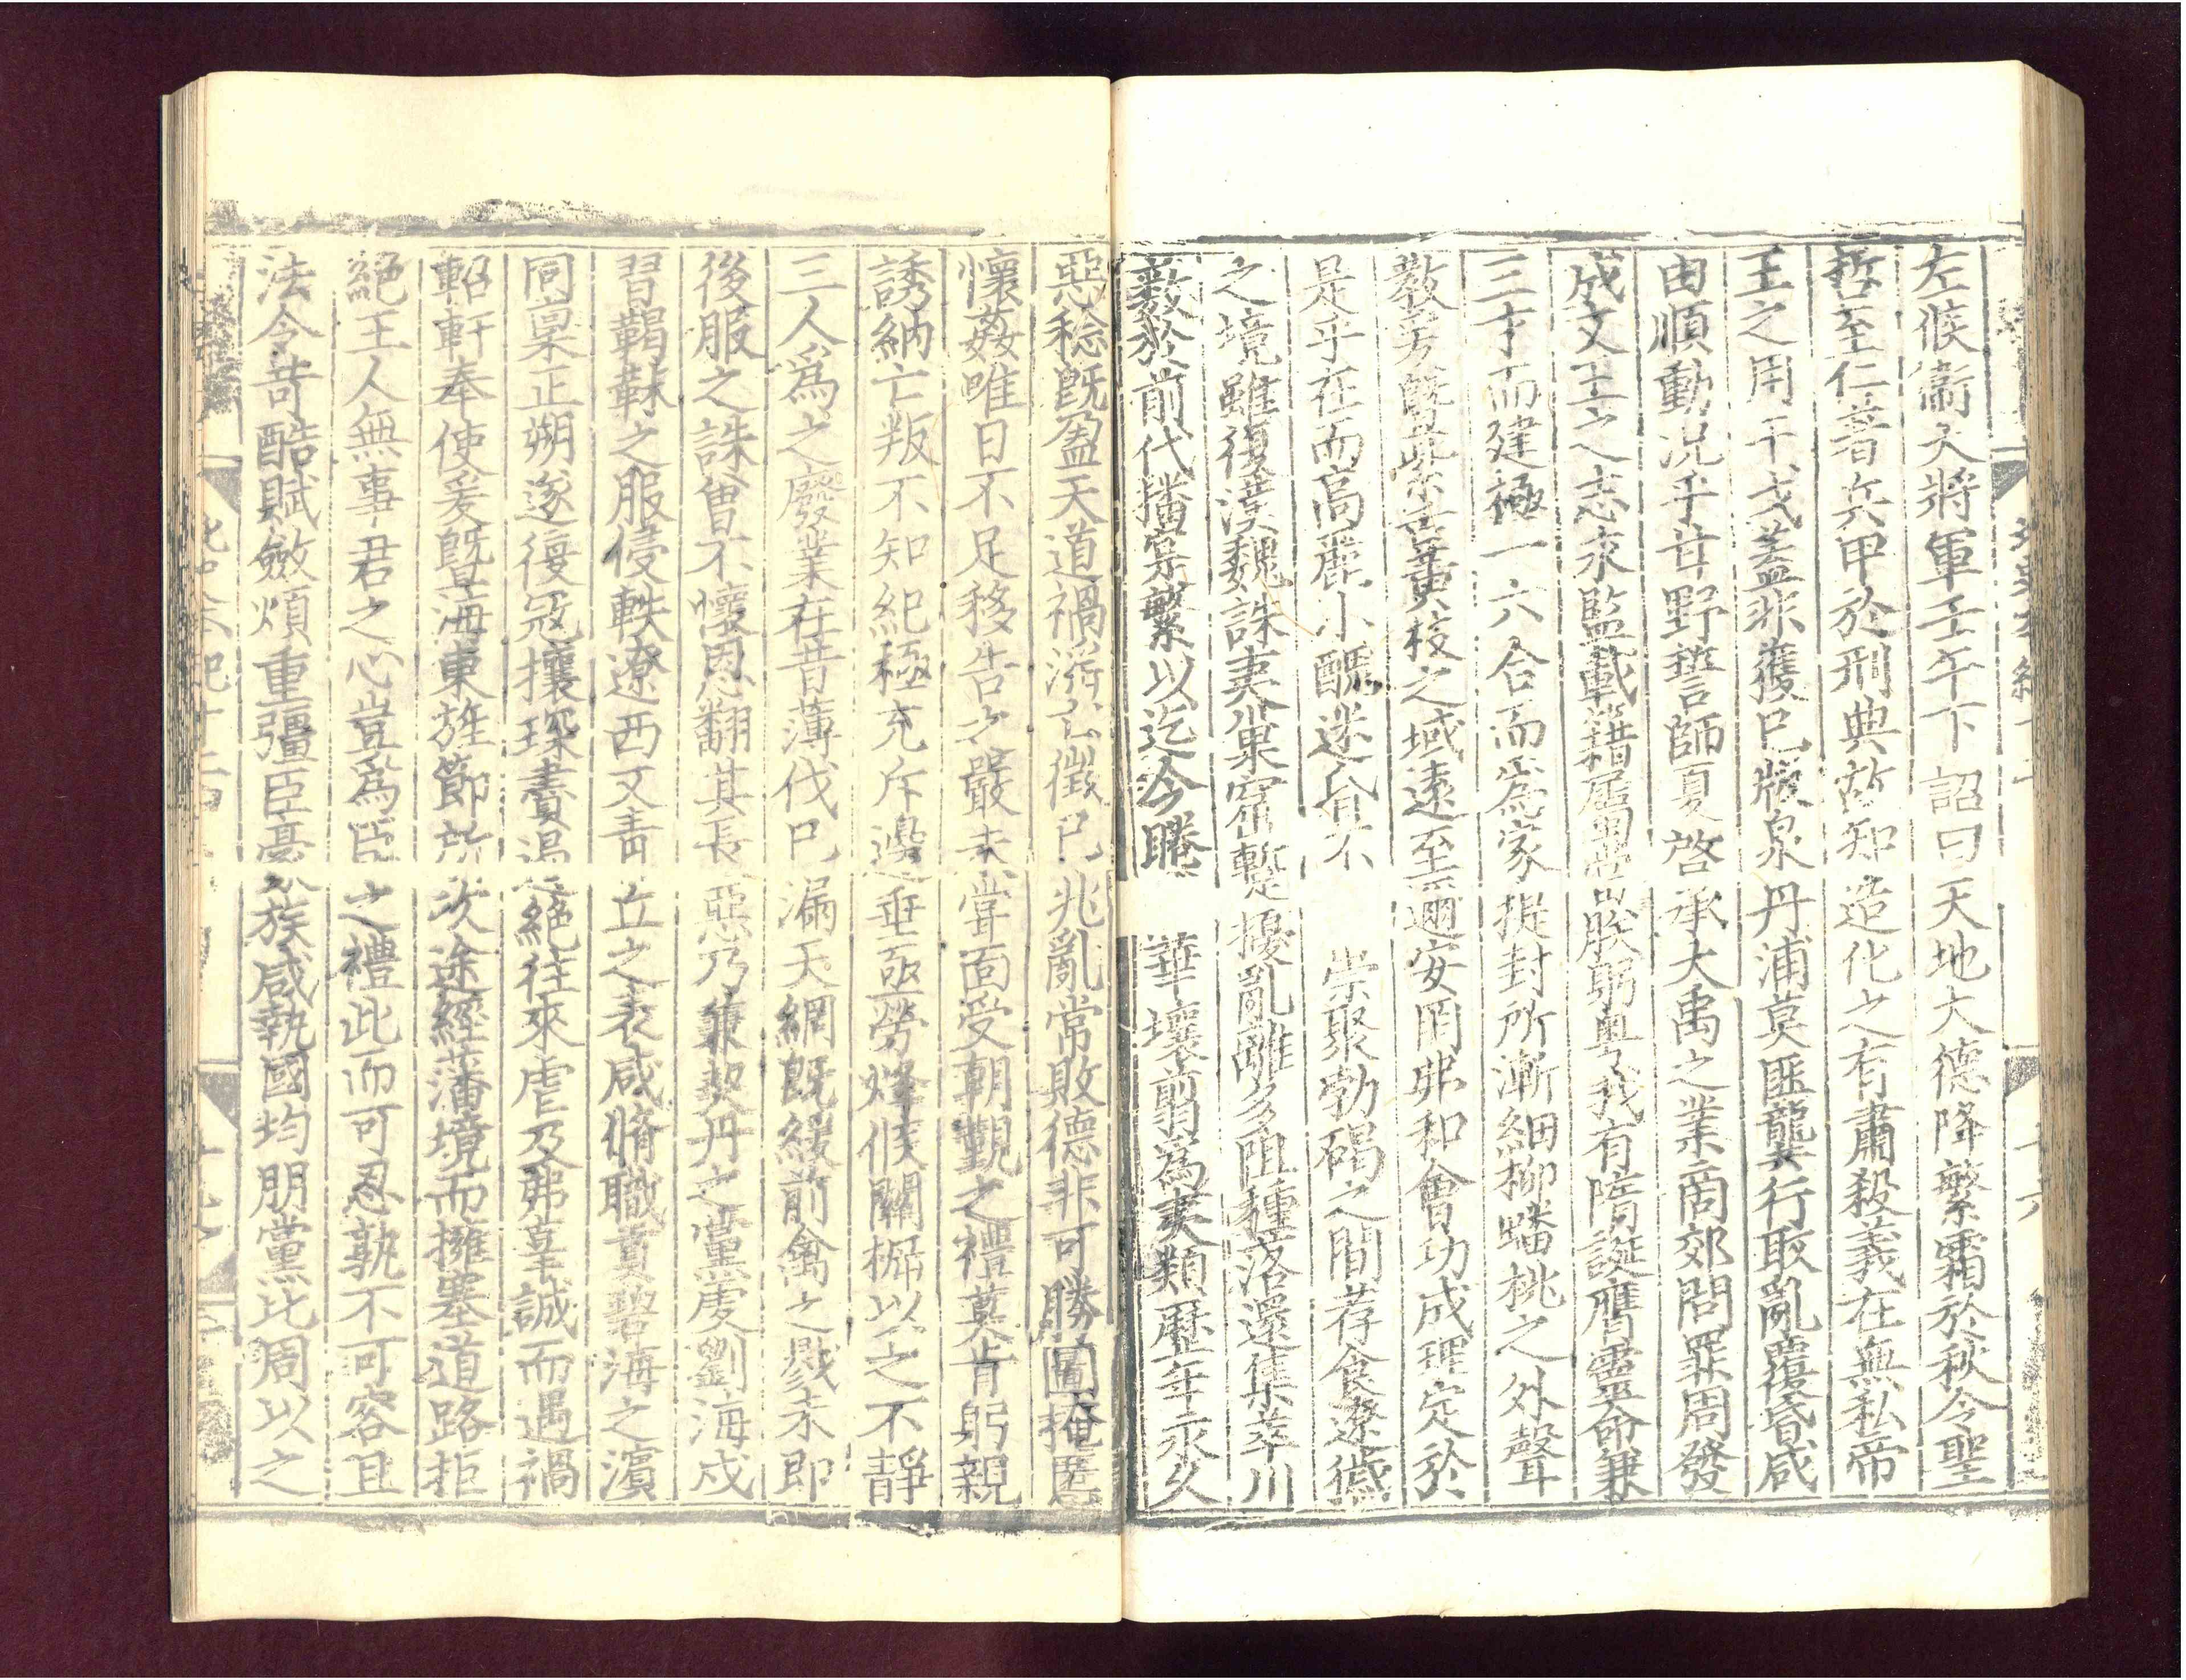 左候衞大將軍壬午下詔曰天地大德降繁霜於秋令聖
哲至仁著兵甲於刑典故知造化之有肅殺義在無私帝
王之用干戈蓋非獲已版泉丹浦莫匪龔行取亂覆昏咸
由順動况乎甘野誓師夏啓承大禹之業商郊問罪周發
成文王之志永監載籍屬當朕躬粵我有隋誕膺靈命兼
三才而建極一六合而爲家提封所漸細柳蟠桃之外聲
教爰曁紫舌黃枝之域遠至邇安罔弗和會功成理定於
是乎在而高麗小醜迷昏不 崇聚勃碣之間荐食遼獩
之境雖復漢魏誅夷巢窟蹔擾亂離多阻種落還集萃川
藪於前代播寔繁以迄今睠 華壤翦爲夷類歷年永久
惡稔旣盈天道禍淫亡徵已兆亂常敗德非可勝圖掩慝
懷姦唯日不足移告之嚴未嘗面受朝覲之禮莫肯躬親
誘納亡叛不知紀極充斥邊垂亟勞烽候關柝以之不靜
三人爲之廢業在昔薄伐已漏天網旣緩前禽之戮未即
後服之誅曾不懷恩翻其長惡乃兼契丹之黨虔劉海戍
習鞨靺之服侵軼遼西又青丘之表咸脩職貢碧海之濱
同稟正朔遂復冦攘琛賮遏絕往來虐及弗辜誠而遇禍
軺軒奉使爰曁海東旌節所次途經藩境而擁塞道路拒
絕王人無事君之心豈爲臣之禮此而可忍孰不可容且
法令苛酷賦斂煩重彊臣豪族咸執國均朋黨比周以之